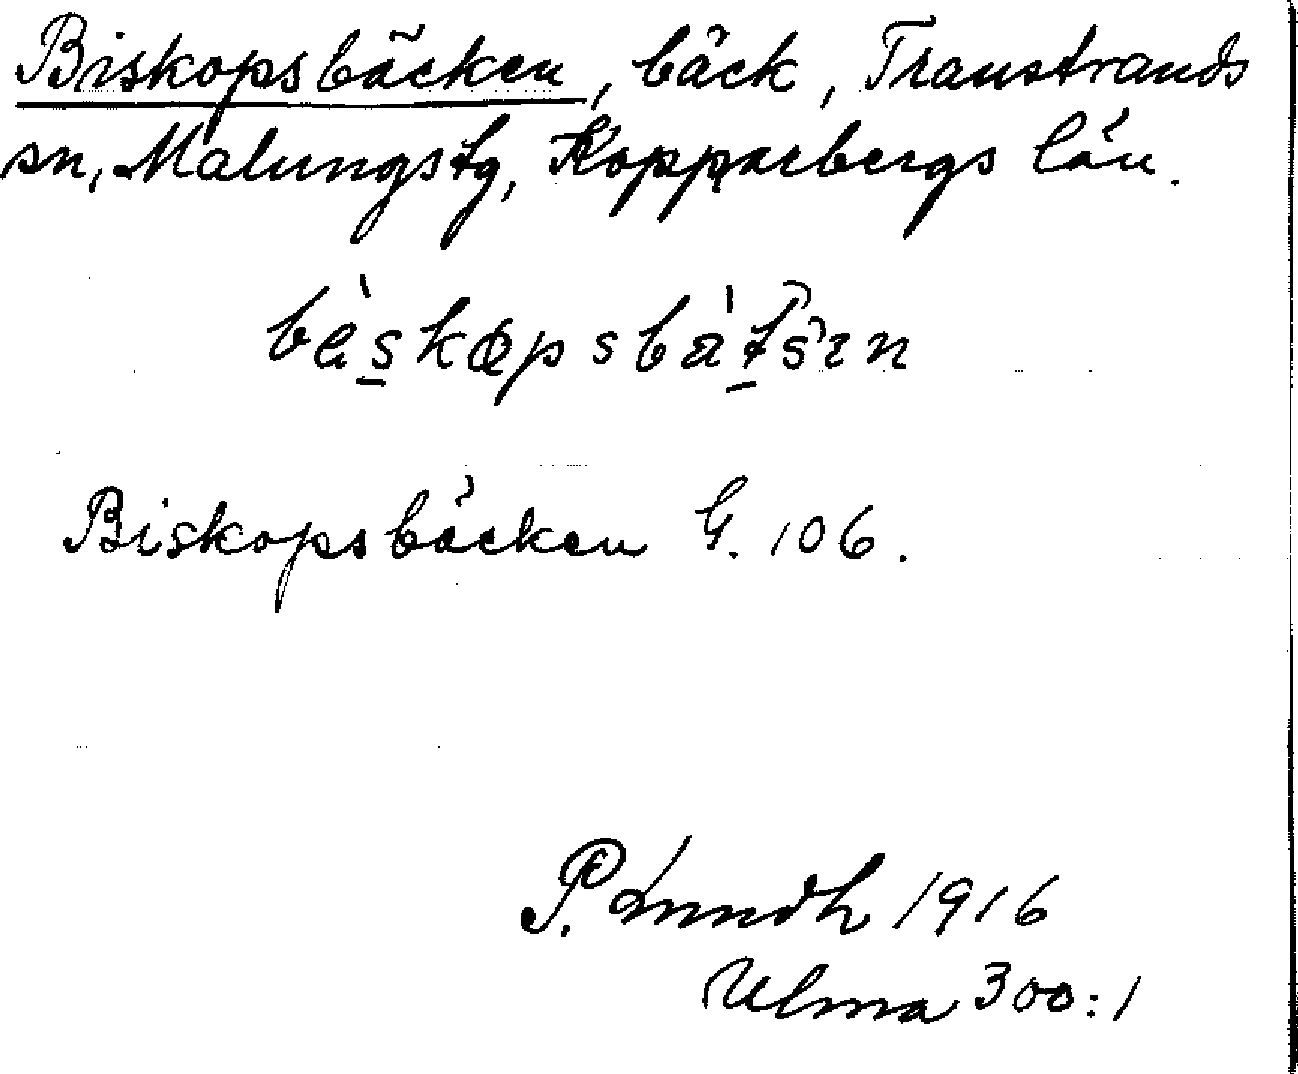 Biskopsbäcken, bäck, Transtrands
sn, Malungs tg, Kopparbergs län.
Biskopsbäcken G. 106.
P. Lundh 1916
Ulma 300:1